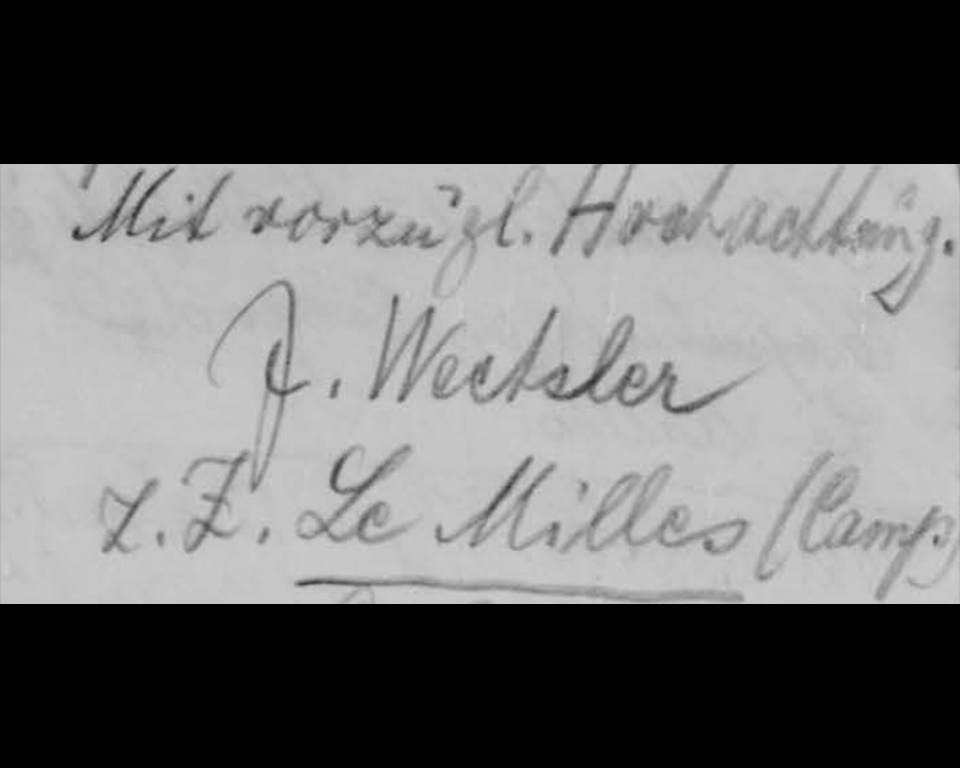 Mit vorzügl. Hochachtung.
J. Wechsler
z. Z. Le Milles (Camp)